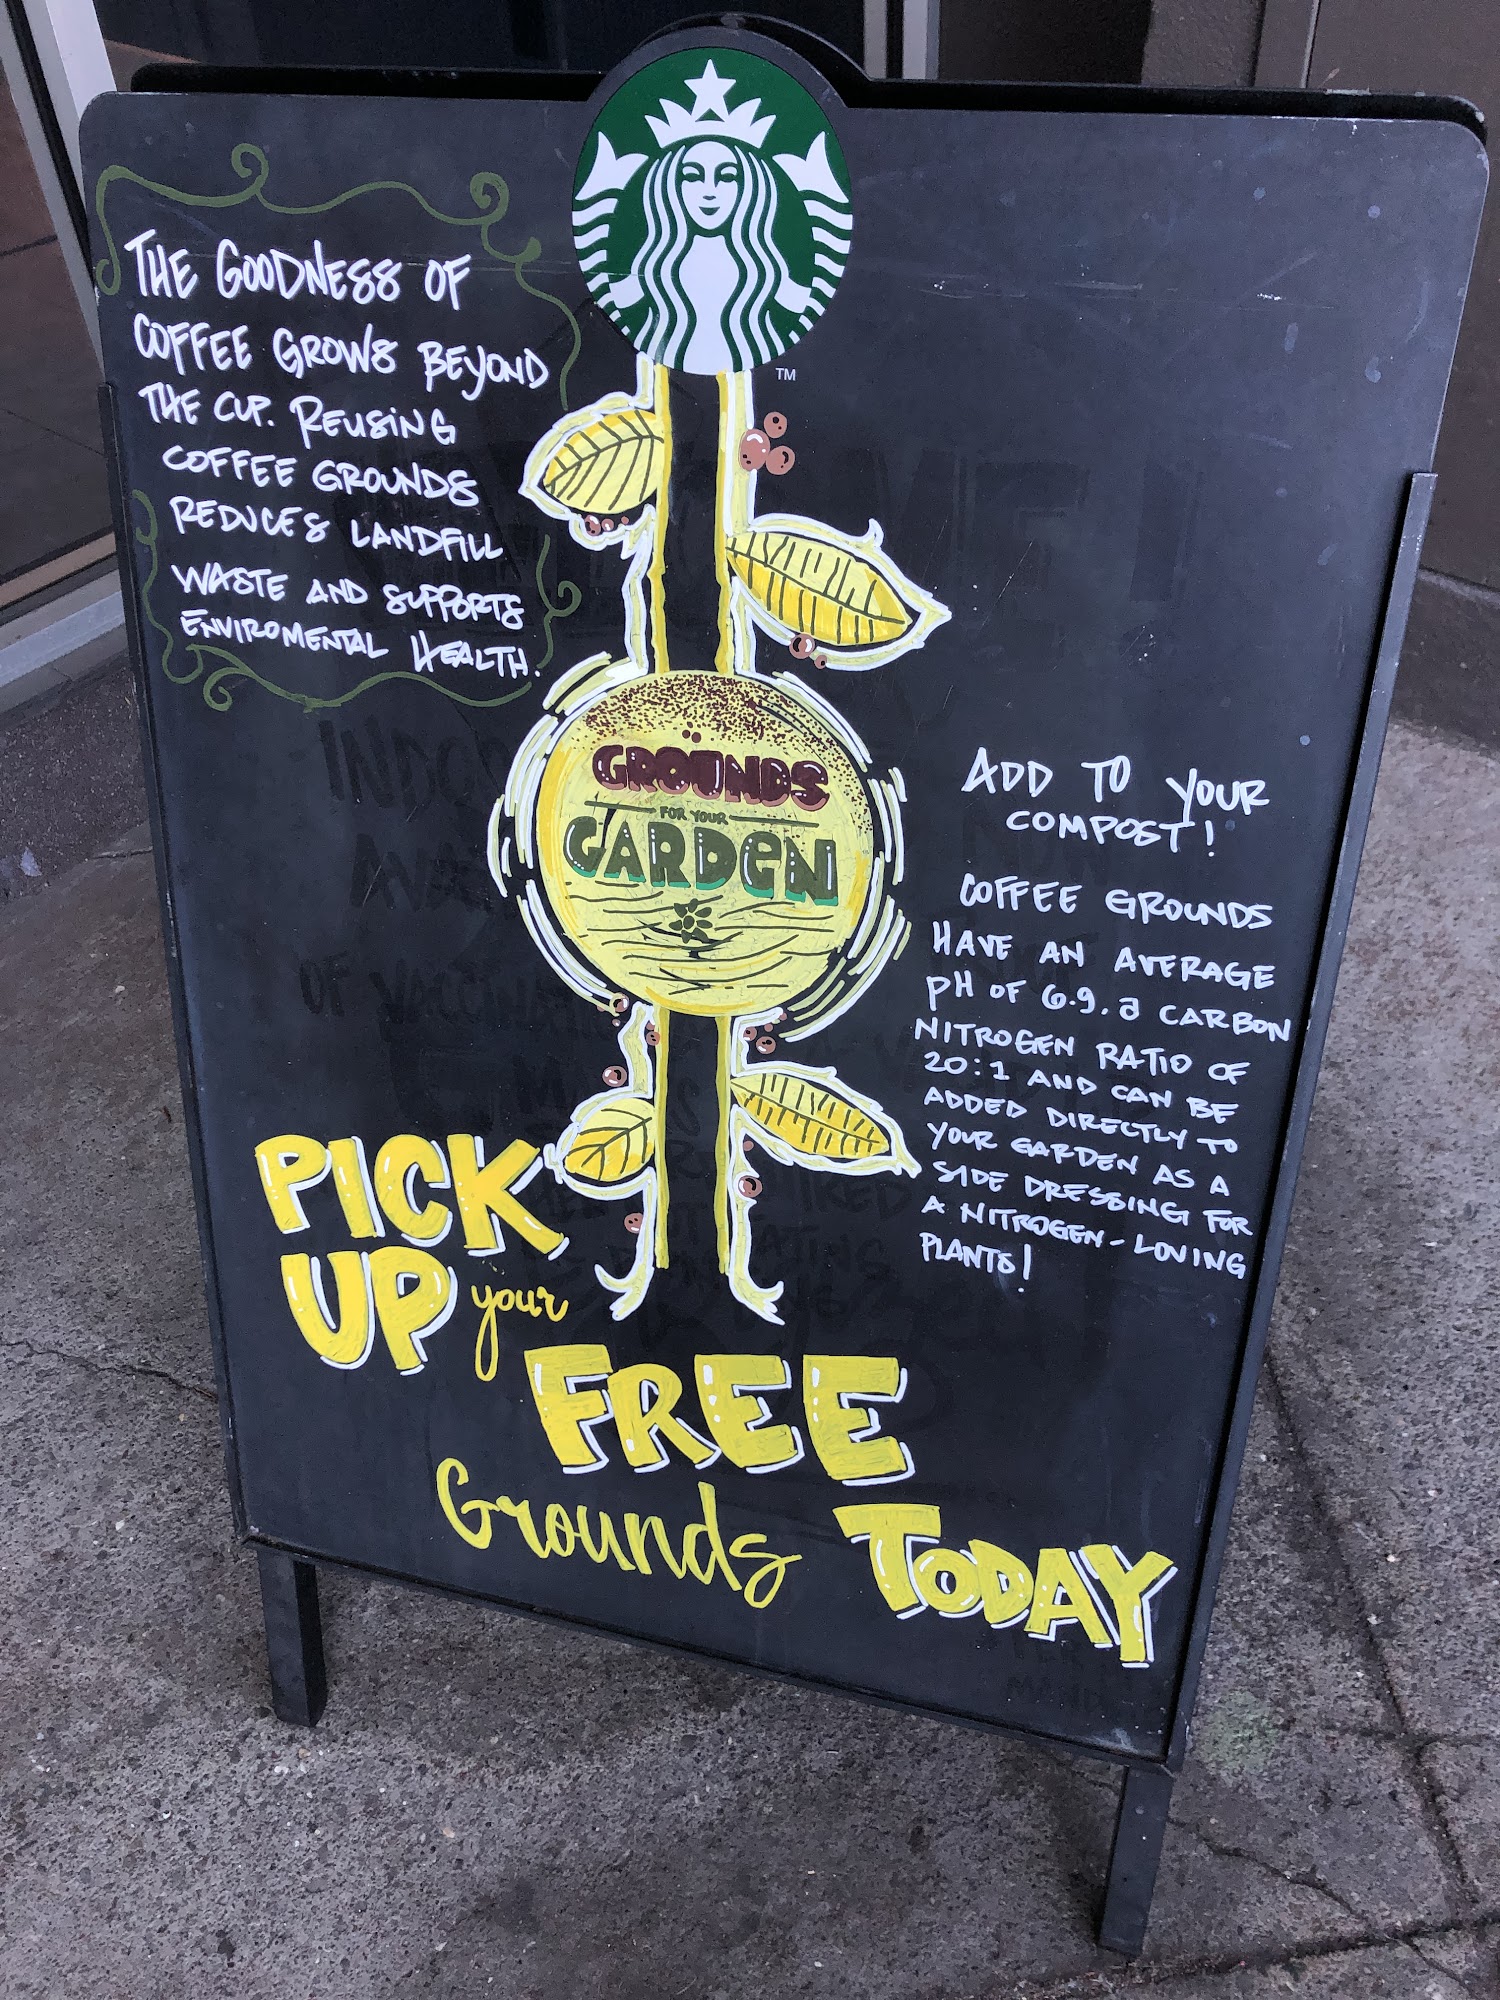 THE GOODNESS OF
COFFEE GROWS BEYOND
THE CUP. REUSING
COFFEE GROUNDS
REDUCES LANDFILL
WASTE AND SUPPORTS
ENVIROMENTAL HEALTH.
TM
GROUNDS
FOR YOUR
GARDEN
ADD TO YOUR
COMPOST!
COFFEE GROUNDS
HAVE AN AVERAGE
pH OF 6.9, a CARBON
NITROGEN RATIO OF
20:1 AND CAN BE
ADDED DIRECTLY TO
YOUR GARDEN AS A
SIDE DRESSING FOR
A NITROGEN-LOVING
PLANTS!
PICK
UP your
FREE
Grounds TODAY